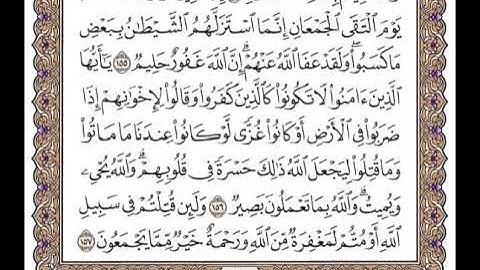 يَوْمَ ٱلْتَقَى ٱلْجَمْعَانِ إِنَّمَا ٱسْتَزَلَّهُمُ ٱلشَّيْطَٰنُ بِبَعْضِ
مَا كَسَبُوا۟ۖ وَلَقَدْ عَفَا ٱللَّهُ عَنْهُمْۗ إِنَّ ٱللَّهَ غَفُورٌ حَلِيمٌ ١٥٥ يَٰٓأَيُّهَا
ٱلَّذِينَ ءَامَنُوا۟ لَا تَكُونُوا۟ كَٱلَّذِينَ كَفَرُوا۟ وَقَالُوا۟ لِإِخْوَٰنِهِمْ إِذَا
ضَرَبُوا۟ فِى ٱلْأَرْضِ أَوْ كَانُوا۟ غُزًّى لَّوْ كَانُوا۟ عِندَنَا مَا مَاتُوا۟
وَمَا قُتِلُوا۟ لِيَجْعَلَ ٱللَّهُ ذَٰلِكَ حَسْرَةً فِى قُلُوبِهِمْۗ وَٱللَّهُ يُحْىِۦ
وَيُمِيتُۗ وَٱللَّهُ بِمَا تَعْمَلُونَ بَصِيرٌ ١٥٦ وَلَئِن قُتِلْتُمْ فِى سَبِيلِ
ٱللَّهِ أَوْ مُتُّمْ لَمَغْفِرَةٌ مِّنَ ٱللَّهِ وَرَحْمَةٌ خَيْرٌ مِّمَّا يَجْمَعُونَ ١٥٧